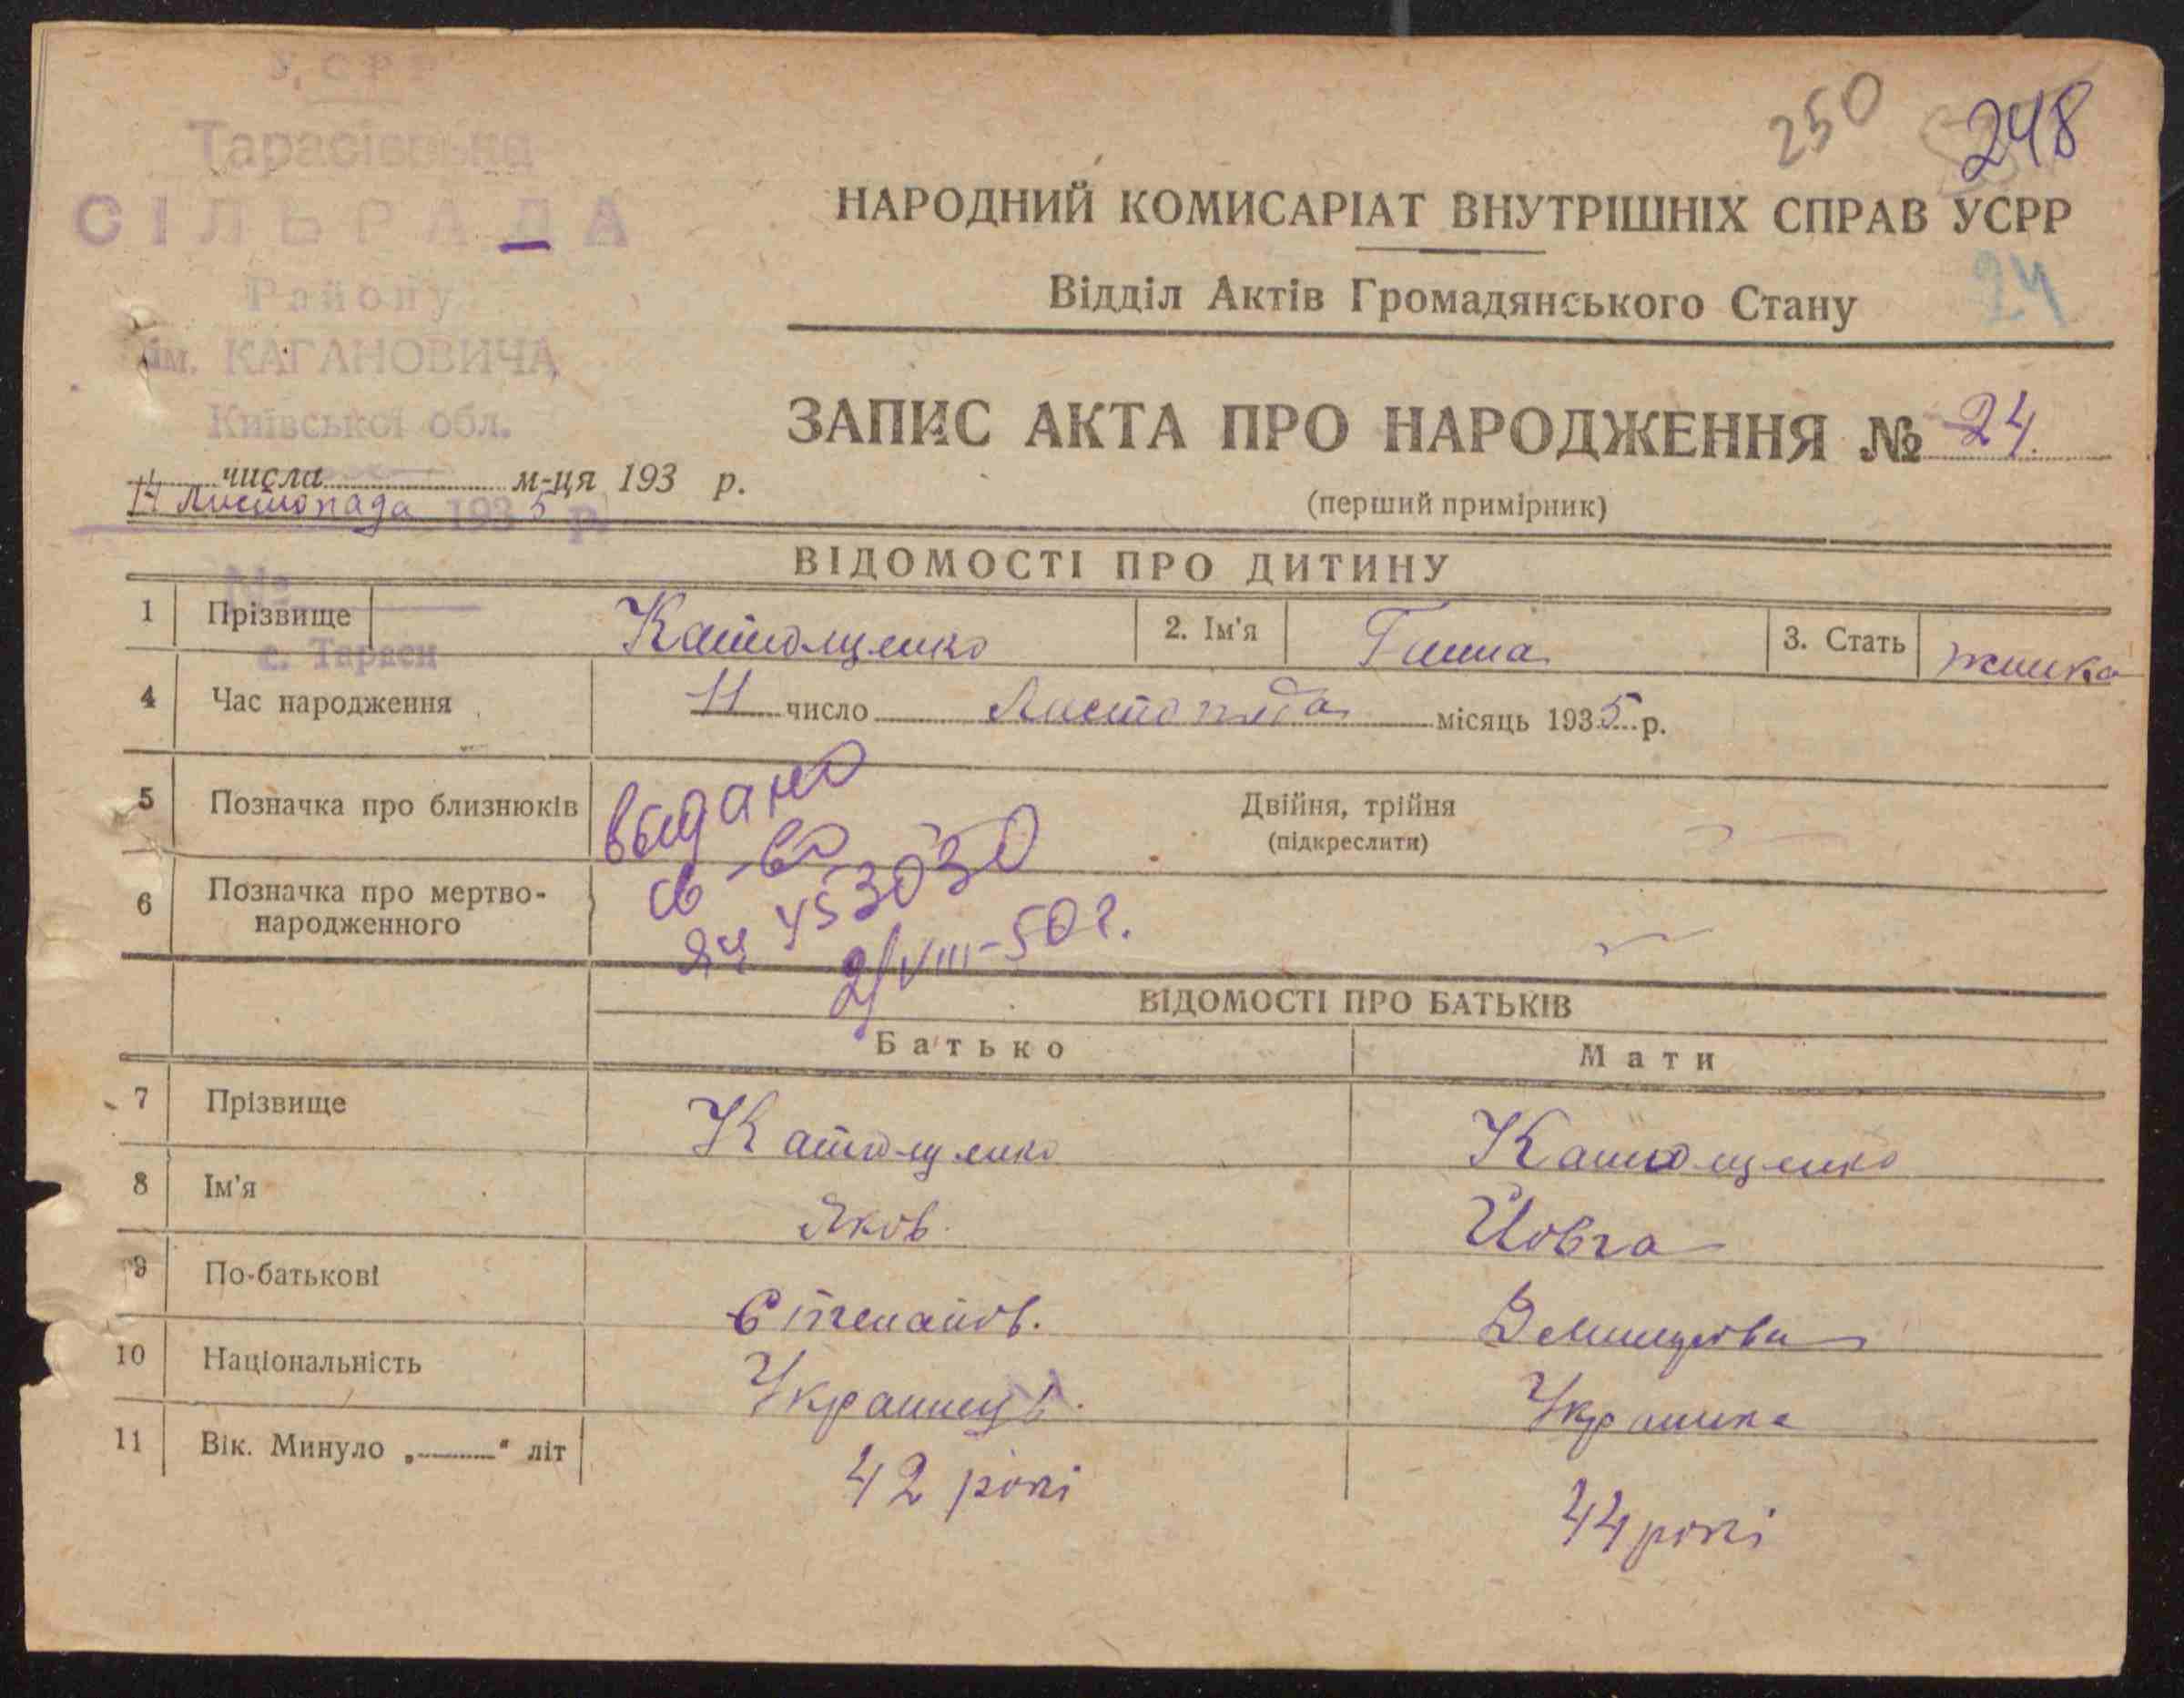 УСРР
Тарасівська
СІЛЬРАДА
Району
ім. КАГАНОВИЧА
Київської обл.
250 248
НАРОДНИЙ КОМИСАРІАТ ВНУТРІШНІХ СПРАВ УСРР
Відділ Актів Громадянського Стану
24
ЗАПИС АКТА ПРО НАРОДЖЕННЯ № 24.
(перший примірник)
числа м-ця 193 р.
14 Листопада 1935 р.
№
с. Тараси
ВІДОМОСТІ ПРО ДИТИНУ
1 Прізвище Катющенко 2. Ім'я Ганна 3. Стать жинка
4 Час народження 11 число Листопада місяць 1935 р.
5 Позначка про близнюків Двійня, трійня
(підкреслити)
6 Позначка про мертво-
народженного
выдано
св-во
ЯЧ 453030
2/VIII-50 г.
ВІДОМОСТІ ПРО БАТЬКІВ
Батько Мати
7 Прізвище Катющенко Катющенко
8 Ім'я Яков. Йовга
9 По-батькові Степанов.
10 Національність Украинець. Украинка
11 Вік. Минуло „ “ літ 42 рокі 44 рокі